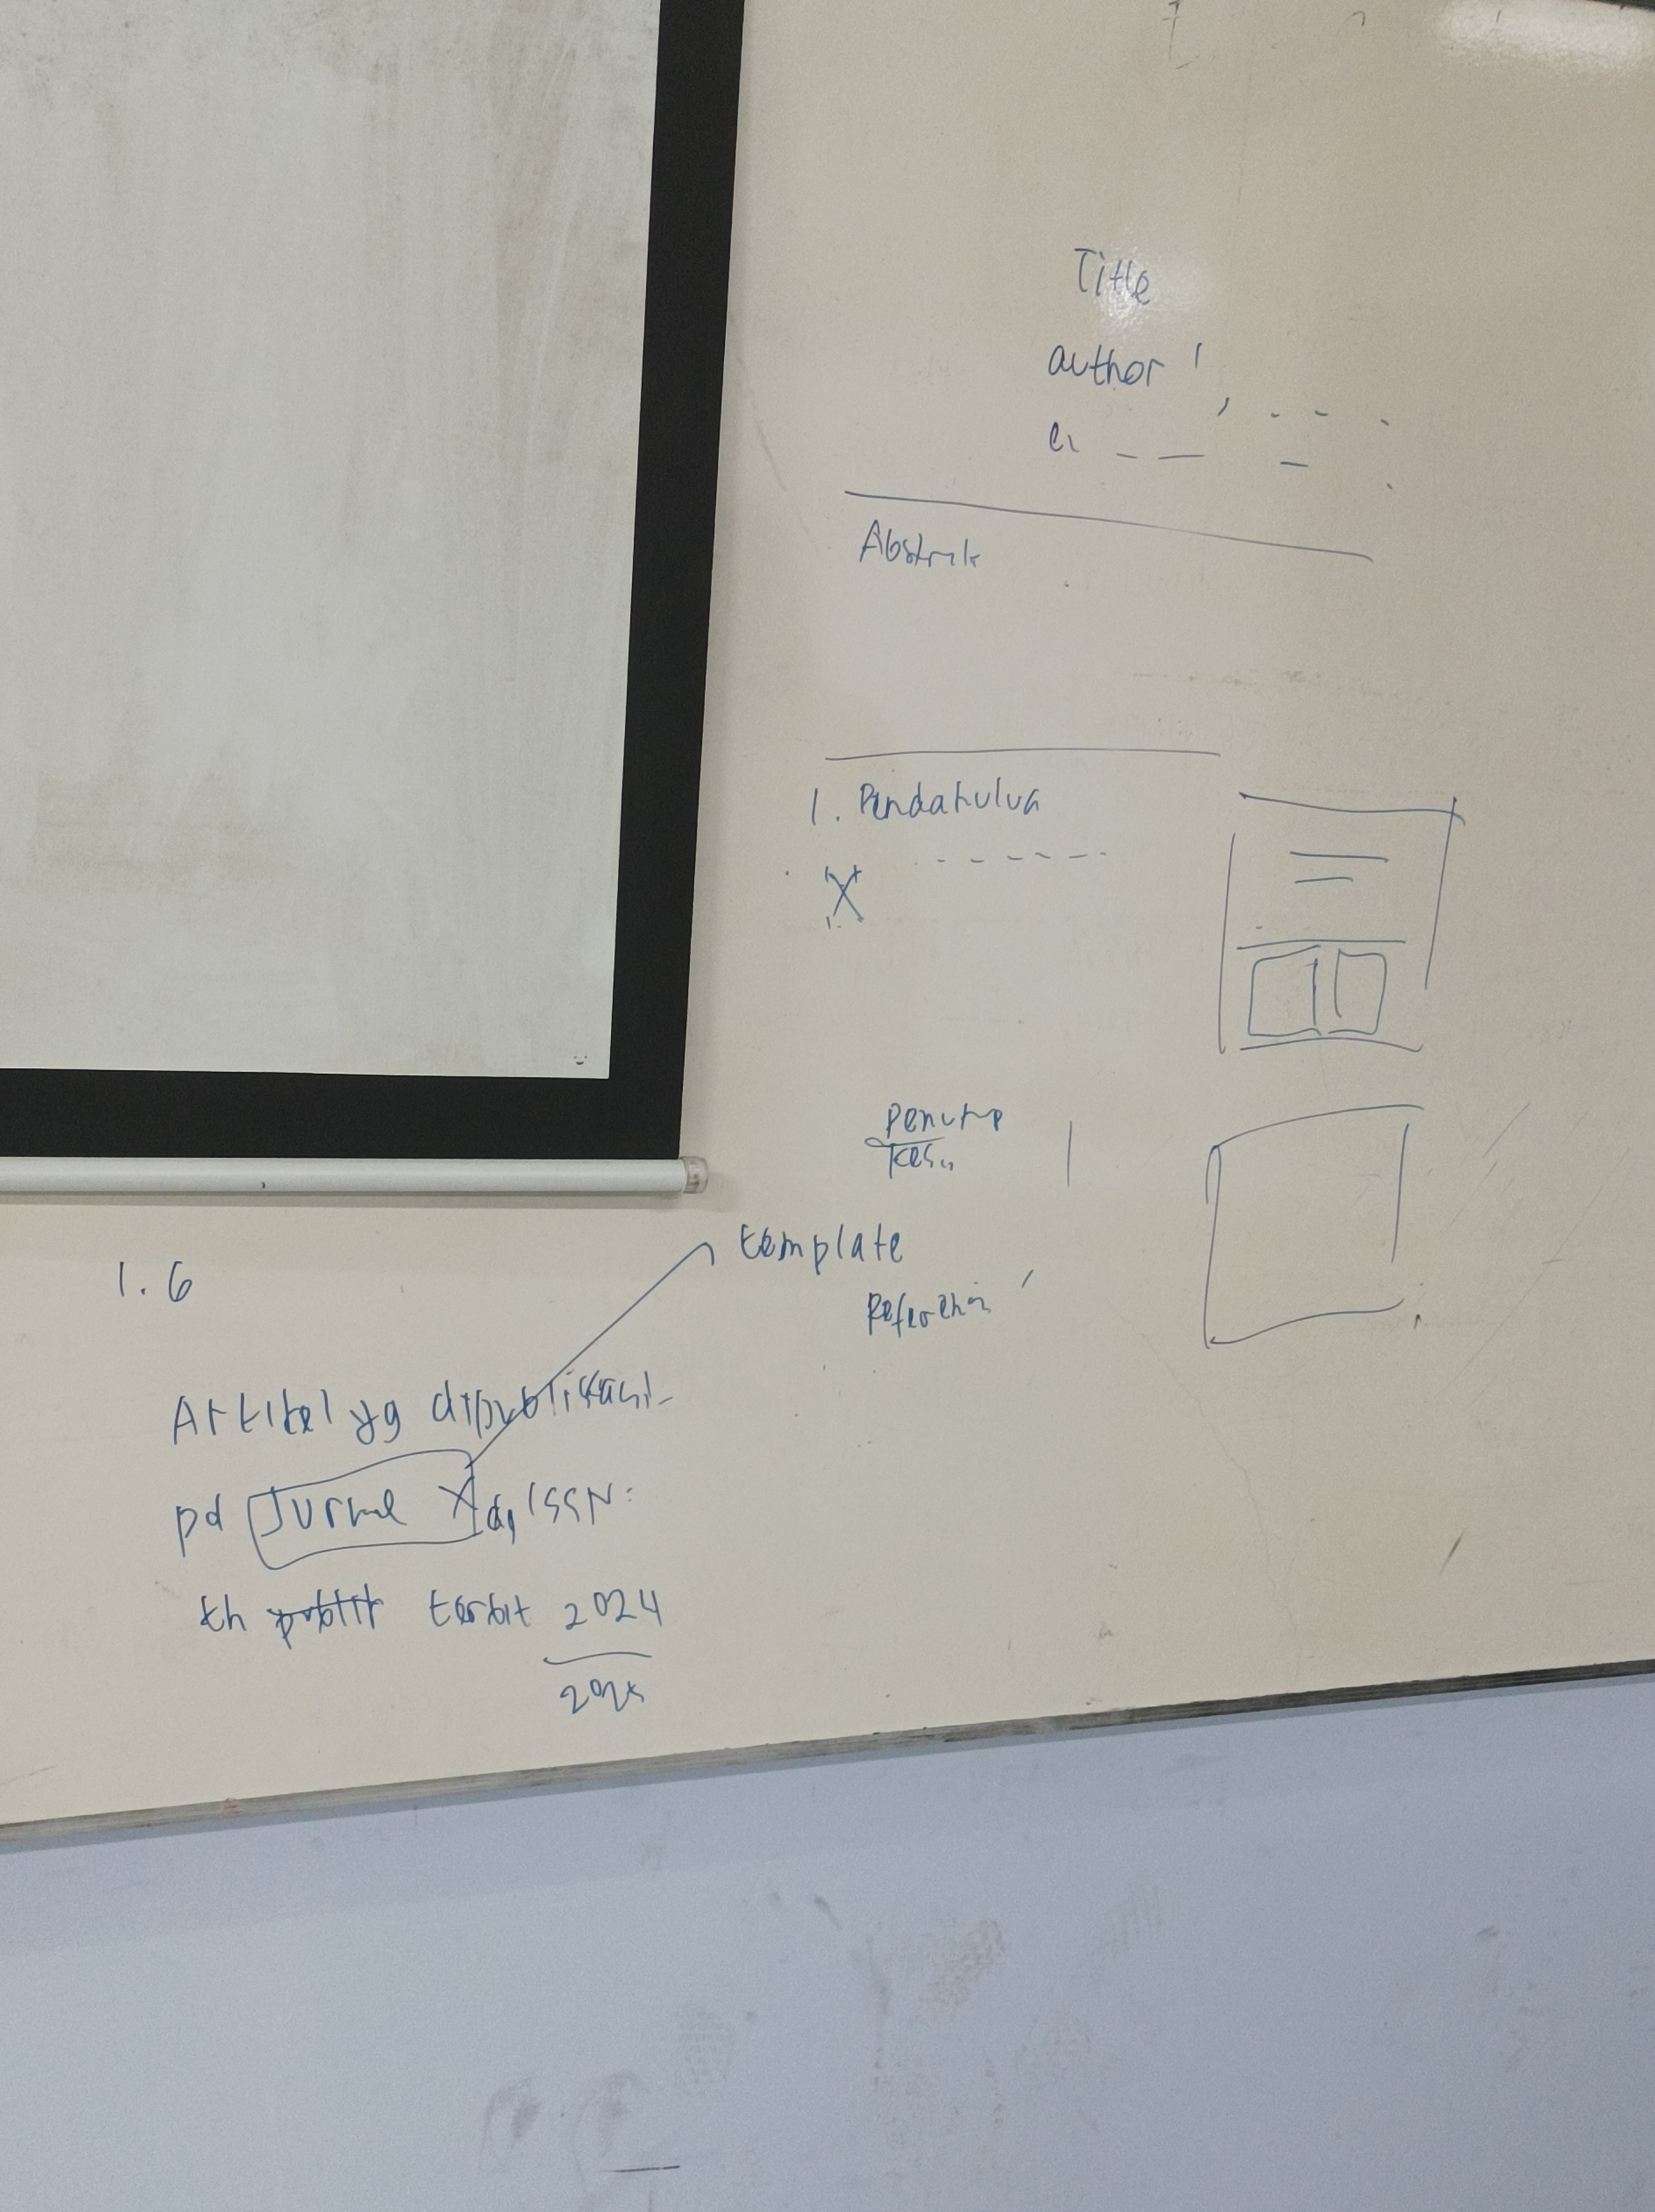 Title
author 1, - - -
e. - - -
Abstrak
1. Pendahulua
- - - - - -
X
Penutup
Kes..
template
Referensi
1.6
Artikel yg dipublikasi
pd Jurnal X dg ISSN:
th publit terbit 2024
2025